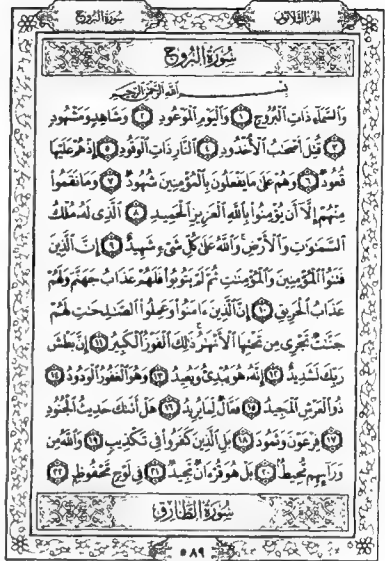 سُورَةُ البُرُوجِ
الجزءُ الثَّلَاثُونَ
سُورَةُ البُرُوجِ
بِسْمِ اللَّهِ الرَّحْمَٰنِ الرَّحِيمِ
وَالسَّمَاءِ ذَاتِ الْبُرُوجِ ١ وَالْيَوْمِ الْمَوْعُودِ ٢ وَشَاهِدٍ وَمَشْهُودٍ
٣ قُتِلَ أَصْحَابُ الْأُخْدُودِ ٤ النَّارِ ذَاتِ الْوَقُودِ ٥ إِذْ هُمْ عَلَيْهَا
قُعُودٌ ٦ وَهُمْ عَلَىٰ مَا يَفْعَلُونَ بِالْمُؤْمِنِينَ شُهُودٌ ٧ وَمَا نَقَمُوا
مِنْهُمْ إِلَّا أَن يُؤْمِنُوا بِاللَّهِ الْعَزِيزِ الْحَمِيدِ ٨ الَّذِي لَهُ مُلْكُ
السَّمَٰوَٰتِ وَالْأَرْضِ وَاللَّهُ عَلَىٰ كُلِّ شَيْءٍ شَهِيدٌ ٩ إِنَّ الَّذِينَ
فَتَنُوا الْمُؤْمِنِينَ وَالْمُؤْمِنَٰتِ ثُمَّ لَمْ يَتُوبُوا فَلَهُمْ عَذَابُ جَهَنَّمَ وَلَهُمْ
عَذَابُ الْحَرِيقِ ١٠ إِنَّ الَّذِينَ ءَامَنُوا وَعَمِلُوا الصَّٰلِحَٰتِ لَهُمْ
جَنَّٰتٌ تَجْرِي مِن تَحْتِهَا الْأَنْهَٰرُ ذَٰلِكَ الْفَوْزُ الْكَبِيرُ ١١ إِنَّ بَطْشَ
رَبِّكَ لَشَدِيدٌ ١٢ إِنَّهُ هُوَ يُبْدِئُ وَيُعِيدُ ١٣ وَهُوَ الْغَفُورُ الْوَدُودُ ١٤
ذُو الْعَرْشِ الْمَجِيدُ ١٥ فَعَّالٌ لِّمَا يُرِيدُ ١٦ هَلْ أَتَىٰكَ حَدِيثُ الْجُنُودِ
١٧ فِرْعَوْنَ وَثَمُودَ ١٨ بَلِ الَّذِينَ كَفَرُوا فِي تَكْذِيبٍ ١٩ وَاللَّهُ مِن
وَرَائِهِم مُّحِيطٌ ٢٠ بَلْ هُوَ قُرْءَانٌ مَّجِيدٌ ٢١ فِي لَوْحٍ مَّحْفُوظٍ ٢٢
سُورَةُ الطَّارِقِ
٥٨٩